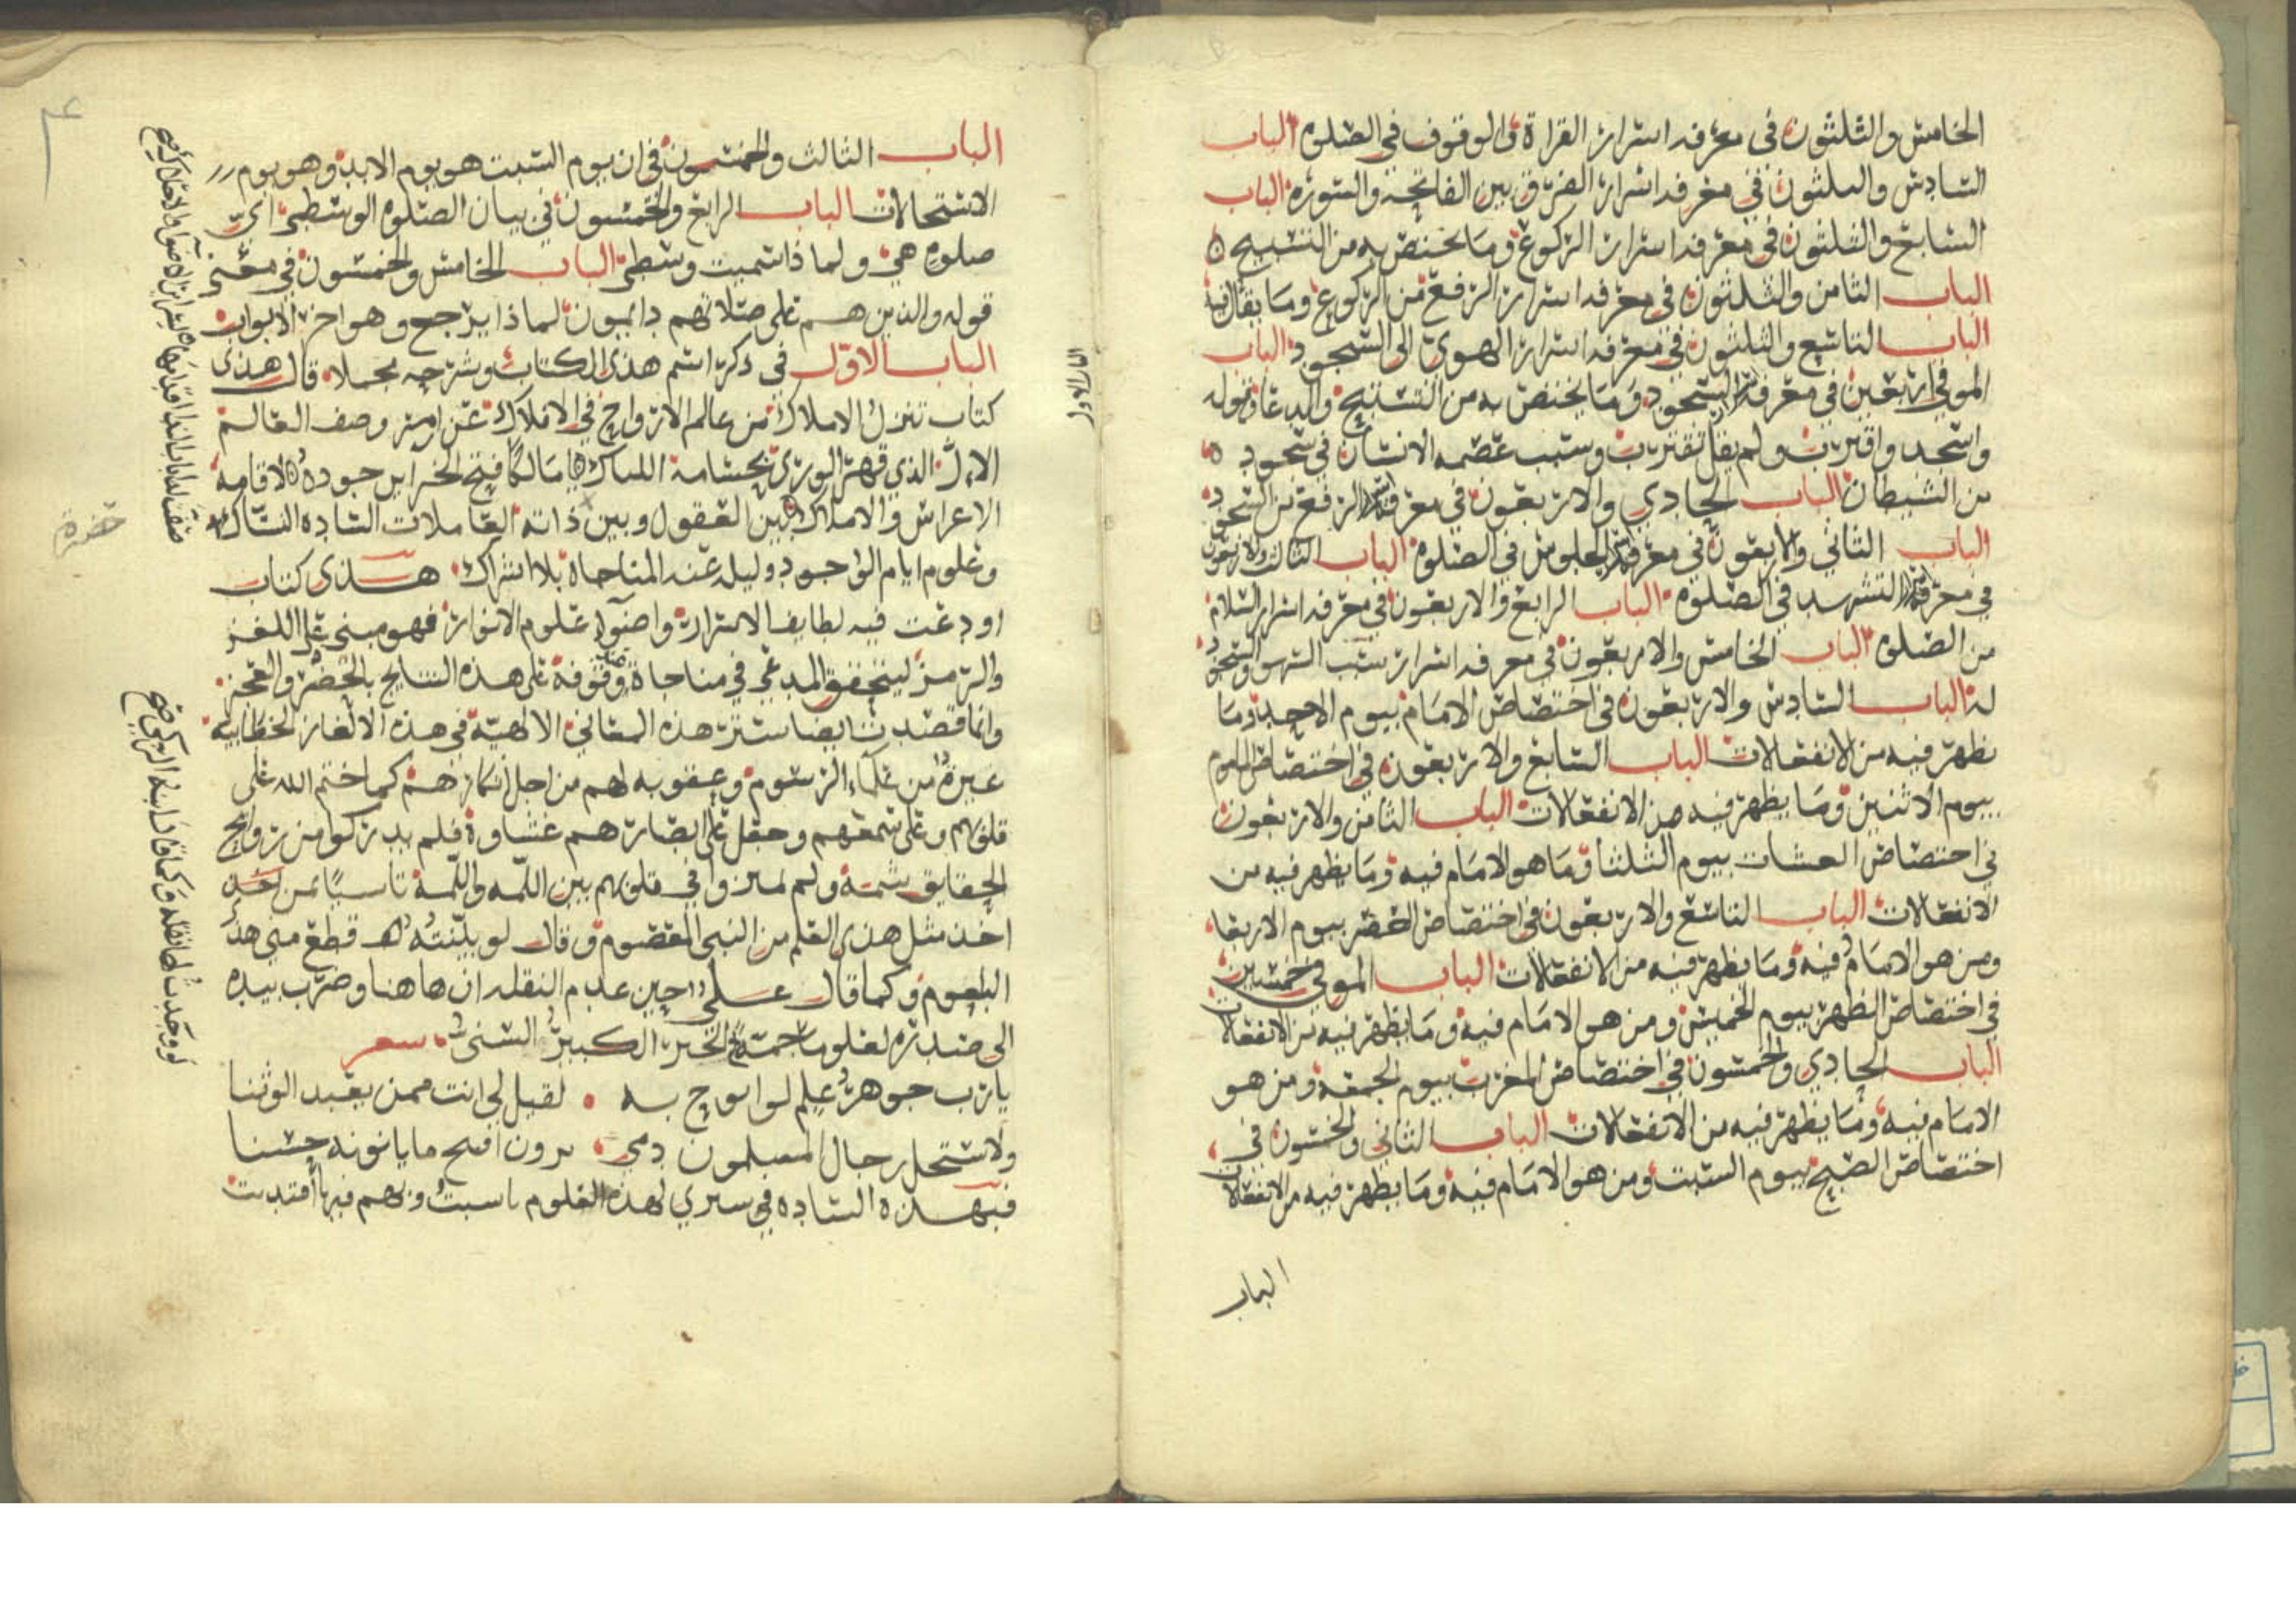 الخامس والثلثون في معرفه اسرار القراة والوقوف في الصلوه الباب
السادس والثلثون في معرفه اسرار الفرق بين الفاتحه والسوره الباب
السابع والثلثون في معرفه اسرار الركوع وما يختص به من التسبيح
الباب الثامن والثلثون في معرفه اسرار الرفع من الركوع وما يقال فيه
الباب التاسع والثلثون في معرفه اسرار الهوي الى السجود الباب
الموفي اربعين في معرفة السجود وما يختص به من التسبيح والدعا وقوله
واسجد واقترب ولم يقل تقترب وسبب عصمه الانسان في سجود ه
من الشيطان الباب الحادي والاربعون في معرفة الرفع من السجود
الباب الثاني والاربعون في معرفة الجلوس في الصلوه الباب الثالث والاربعون
في معرفة التشهد في الصلوه الباب الرابع والاربعون في معرفه اسرار السلام
من الصلوه الباب الخامس والاربعون في معرفه اسرار سبب السهو والسجود
له الباب السادس والاربعون في اختصاص الامام بيوم الاحد وما
يظهر فيه من الانفعالات الباب السابع والاربعون في اختصاص الماموم
بيوم الاثنين وما يظهر فيه من الانفعالات الباب الثامن والاربعون
في اختصاص العشاء بيوم الثلثا وما هو الامام فيه وما يظهر فيه من
الانفعالات الباب التاسع والاربعون في اختصاص العصر بيوم الاربعا
ومن هو الامام فيه وما يظهر فيه من الانفعالات الباب الموفي خمسين
في اختصاص الظهر بيوم الخميس ومن هو الامام فيه وما يظهر فيه من الانفعالات
الباب الحادي والخمسون في اختصاص المغرب بيوم الجمعه ومن هو
الامام فيه وما يظهر فيه من الانفعالات الباب الثاني والخمسون في
اختصاص الصبح بيوم السبت ومن هو الامام فيه وما يظهر فيه من الانفعالات
الباب
الباب الثالث والخمسون في ان يوم السبت هو يوم الابد وهو يوم
الاستحالات الباب الرابع والخمسون في بيان الصلوه الوسطى اي
صلوه هي ولما ذا سميت وسطى الباب الخامس والخمسون في معنى
قوله والذين هم على صلاتهم دايمون لماذا يرجع وهو اخر الابواب
الباب الاول في ذكر اسم هذى الكتاب وشرحه مجملا قال هذى
كتاب تنزل الاملاك من عالم الارواح في الافلاك عن اومر وصف العالم
الاعراض والاملاك بين العقول وبين ذاته العاملات الساده النساك
وعلوم ايام الوجود وليله عند المناجاة بلا اشراك هذى كتاب
اودعت فيه لطايف الاسرار واضوا علوم الانوار فهو مبنى على اللغز
والرمز ليتحقق المدعي في مناجاة وقوفه على هذه النتايج بالحصر والعجز
وانما قصدت ايضا ستر هذه المعاني الالهية في هذه الالغاز الخطابيه
غيرة من علماء الرسوم وعقوبه لهم من اجل انكارهم كما ختم الله على
قلوبهم وعلى سمعهم وجعل على ابصارهم غشاوة فلم يدركوا من روايح
الحقايق شمة ولم يميزوا في قلوبهم بين اللمه واللمة تاسيا بمن اخذ
اخذ مثل هذى العلم من النبي المعصوم وقال لو بثثته قطع منى هذ
البلعوم وكما قال علي حين عدم النقله ان هاهنا وضرب بيده
الى صدره لعلوما جمة الخبر الكبير السنى شعر
يارب جوهر علم لو ابوح به لقيل لي انت ممن يعبد الوثنا
ولاستحل رجال المسلمون دمي يرون اقبح ما ياتونه حسنا
فبهذه الساده في ستري لهذه العلوم تاسيت وبهم فيها اقتديت
الباب الاول